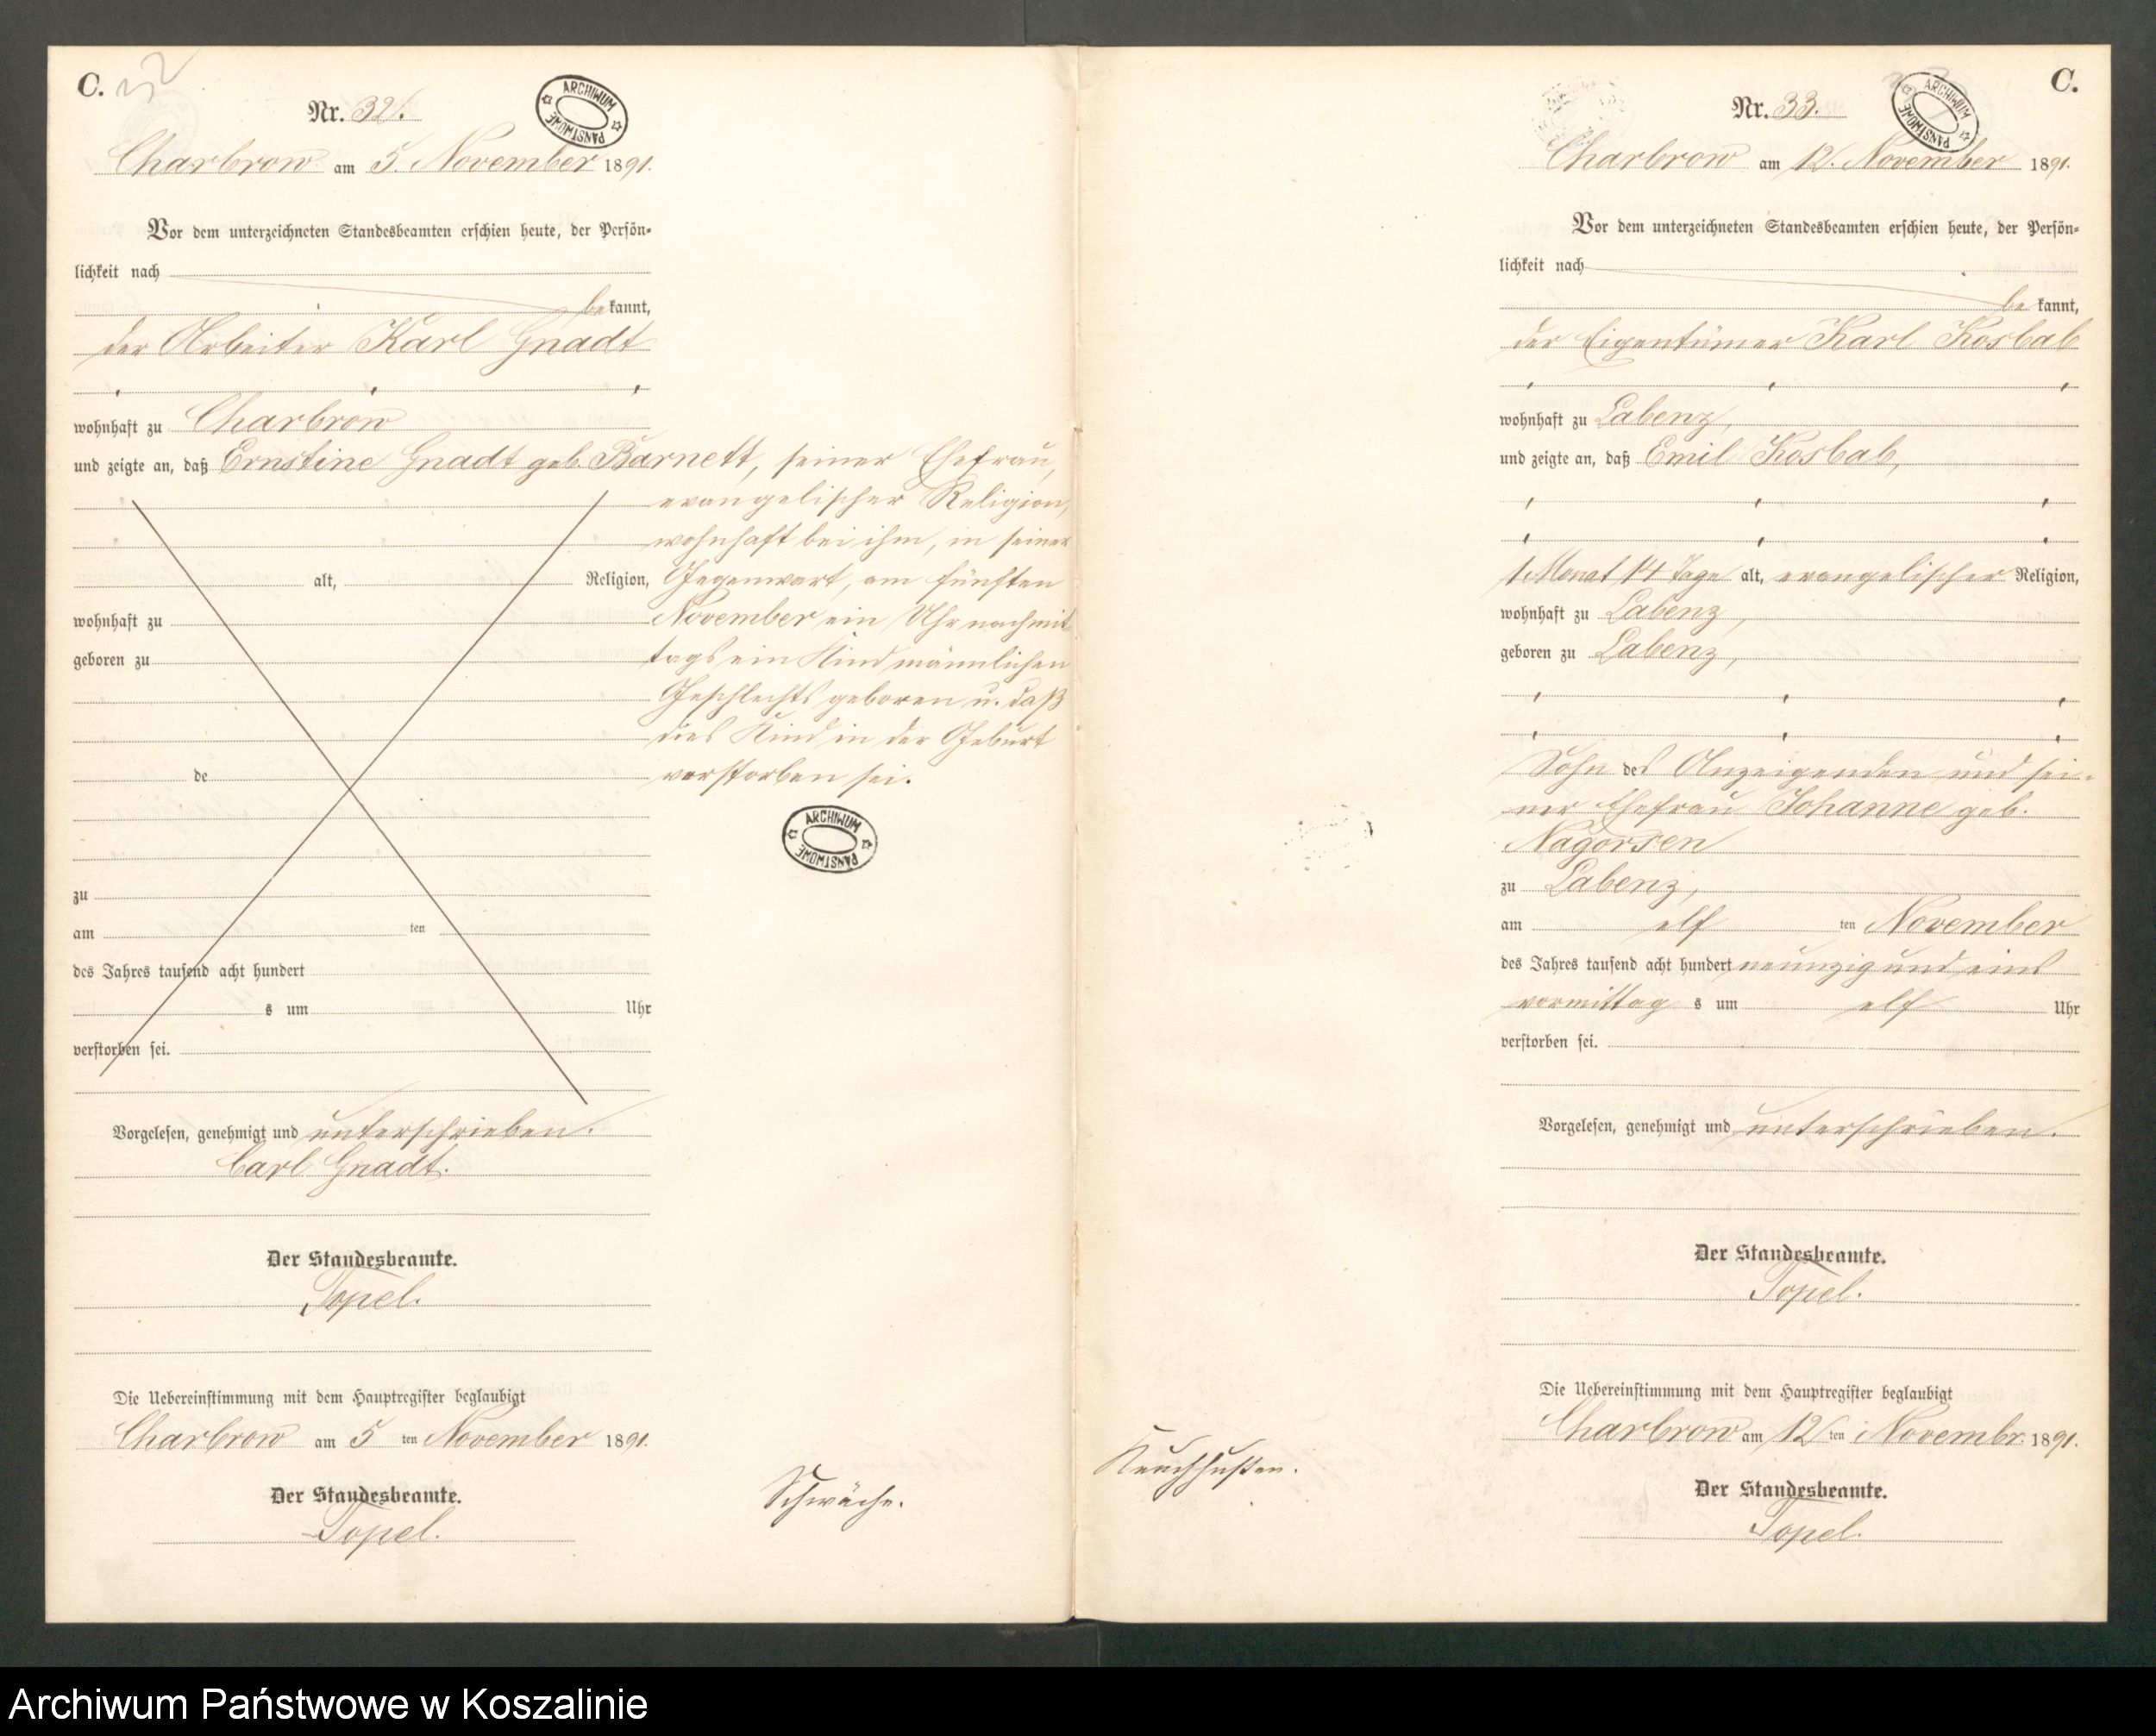 C. 32
Nr. 32.
ARCHIWUM PAŃSTWOWE
Charbrow am 5. November 1891.
Vor dem unterzeichneten Standesbeamten erschien heute, der Persön-
lichkeit nach
bekannt,
der Arbeiter Karl Gnadt
wohnhaft zu Charbrow
und zeigte an, daß Ernstine Gnadt geb. Barnett, seiner Ehefrau,
evangelischer Religion,
wohnhaft bei ihm, in seiner
alt, Religion, Gegenwart, am fünften
wohnhaft zu November ein Uhr nachmit
geboren zu tags ein Kind männlichen
Geschlechts geboren u. daß
dies Kind in der Geburt
de verstorben sei.
ARCHIWUM PAŃSTWOWE
zu
am ten
des Jahres tausend acht hundert
s um Uhr
verstorben sei.
Vorgelesen, genehmigt und unterschrieben.
Carl Gnadt.
Der Standesbeamte.
Topel.
Die Uebereinstimmung mit dem Hauptregister beglaubigt
Charbrow am 5 ten November 1891.
Der Standesbeamte.
Topel.
Schwäche.
C.
Nr. 33.
ARCHIWUM PAŃSTWOWE
Charbrow am 12. November 1891.
Vor dem unterzeichneten Standesbeamten erschien heute, der Persön-
lichkeit nach
be kannt,
der Eigentümer Karl Kosbab
wohnhaft zu Labenz,
und zeigte an, daß Emil Kosbab,
1 Monat 14 Tage alt, evangelischer Religion,
wohnhaft zu Labenz,
geboren zu Labenz,
Sohn des Anzeigenden und sei-
ner Ehefrau Johanne geb.
Nagorsen
zu Labenz,
am elf ten November
des Jahres tausend acht hundert neunzig und eins
vormittag s um elf Uhr
verstorben sei.
Vorgelesen, genehmigt und unterschrieben.
Der Standesbeamte.
Topel.
Die Uebereinstimmung mit dem Hauptregister beglaubigt
Charbrow am 12 ten Novembr. 1891.
Der Standesbeamte.
Topel.
Keuchhusten.
Archiwum Państwowe w Koszalinie